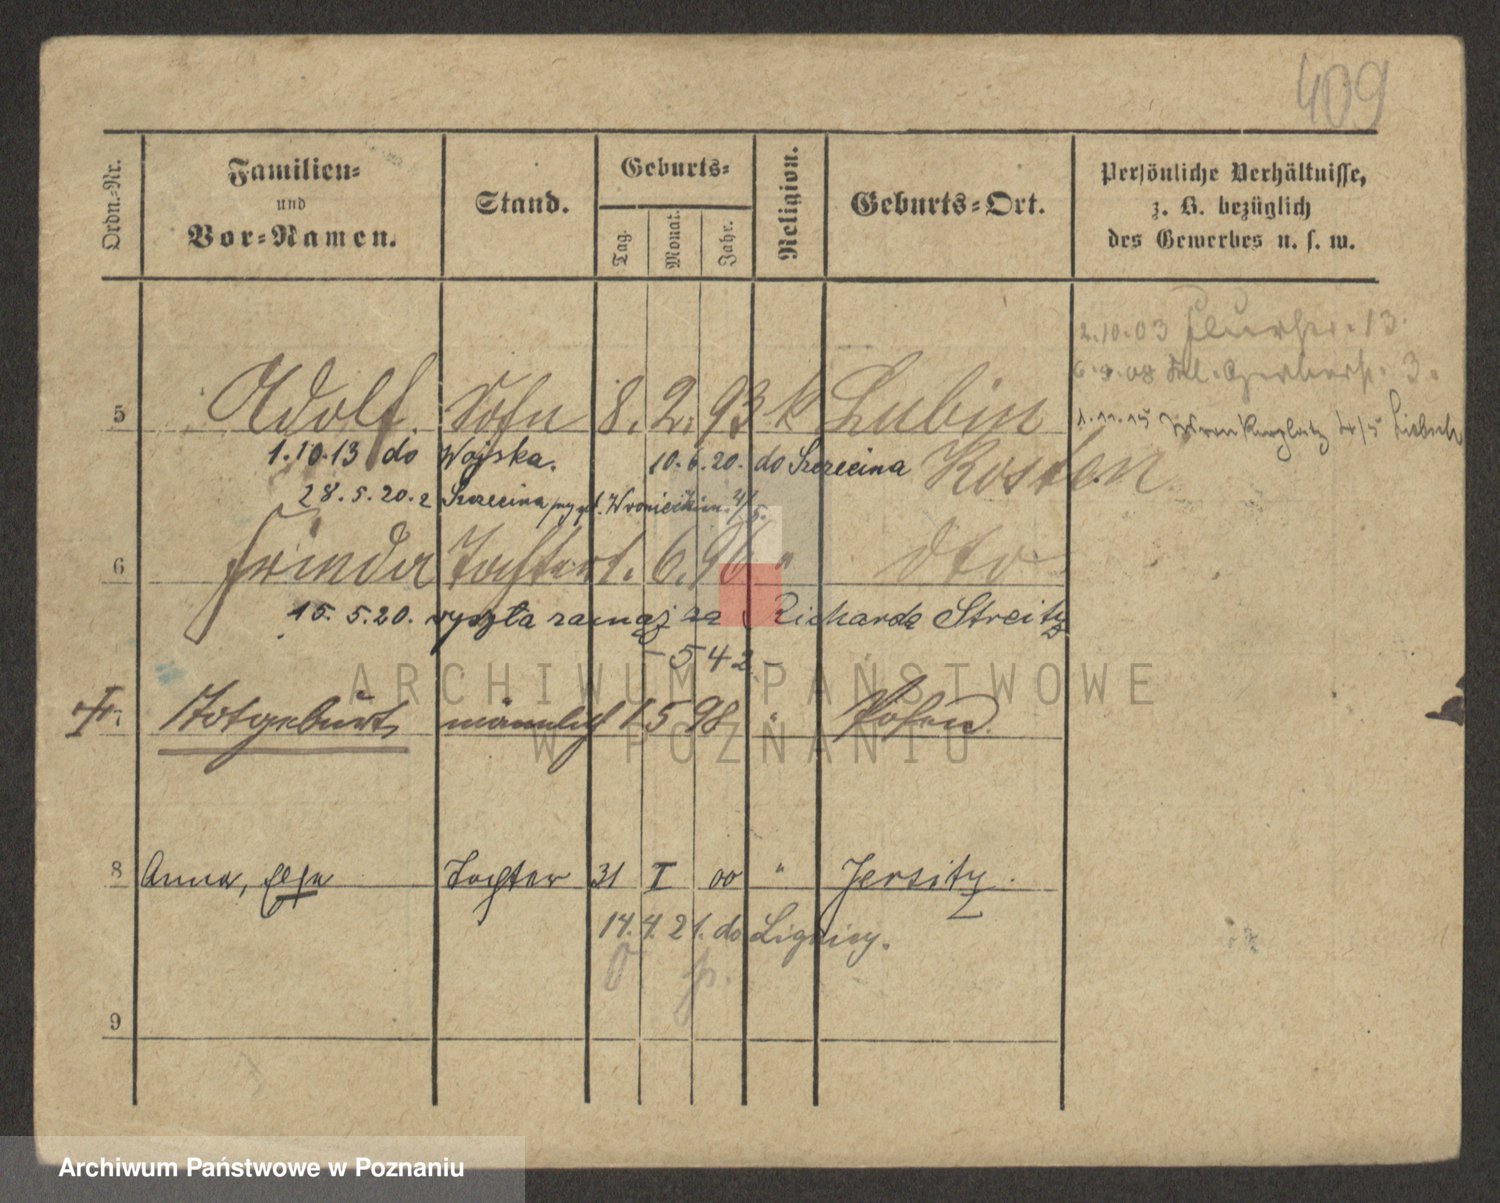 409
Ordn.-Nr.
Familien-
und
Vor-Namen.
Stand.
Geburts-
Tag.
Monat.
Jahr.
Religion.
Geburts-Ort.
Persönliche Verhältnisse,
z. B. bezüglich
des Gewerbes u. s. w.
2.10.03 13
6.9.08 3.
1.11.15 Wronkerplatz 4/5 Liebsch
5 Adolf. Sohn 8. 2. 93 k Lubin
Kosten
1.10.13 do Wojska. 10.6.20. do Szczecina
28.5.20. z Szczecina
6 Frieda Tochter 1. 6. 96 " dto
15.5.20. wyszła zamąż za Richarda Streitz
- 542 -
7 Totgeburt männlich 1 5 98 " Posen
8 Anna, Else Tochter 31 I 00 " Jersitz.
14.4.21. do Lignicy.
9
ARCHIWUM PAŃSTWOWE
W POZNANIU
Archiwum Państwowe w Poznaniu